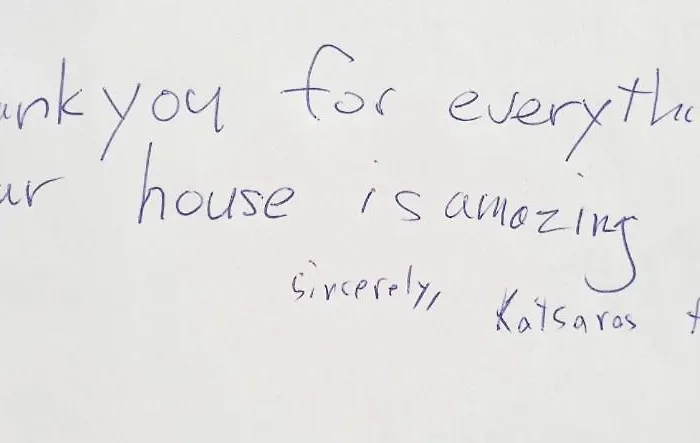 ank you for everythi
ur house is amazing
sincerely, Katsaros f